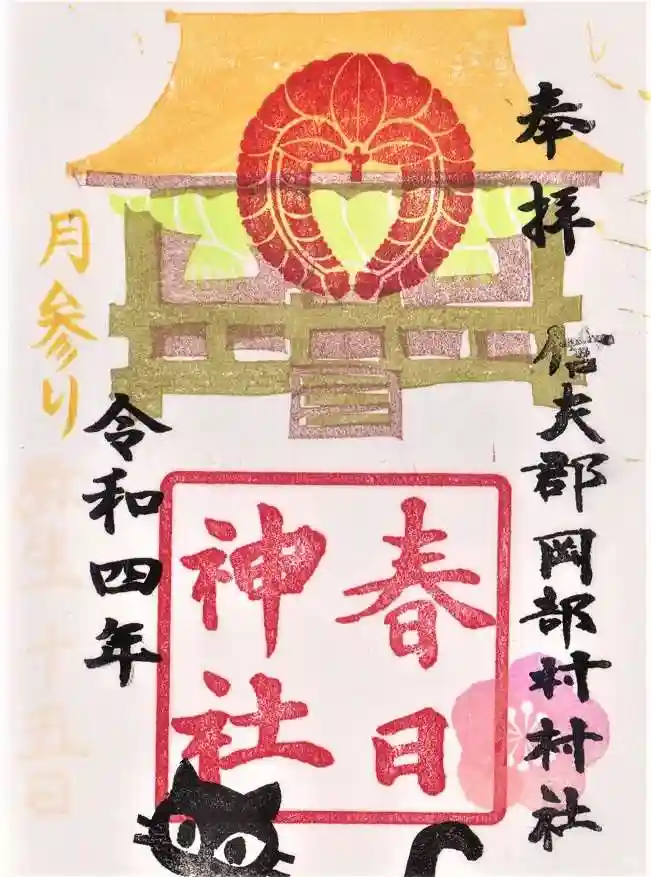 奉拝
信夫郡岡部村村社
春日
神社
月参り
令和四年
弥生十五日